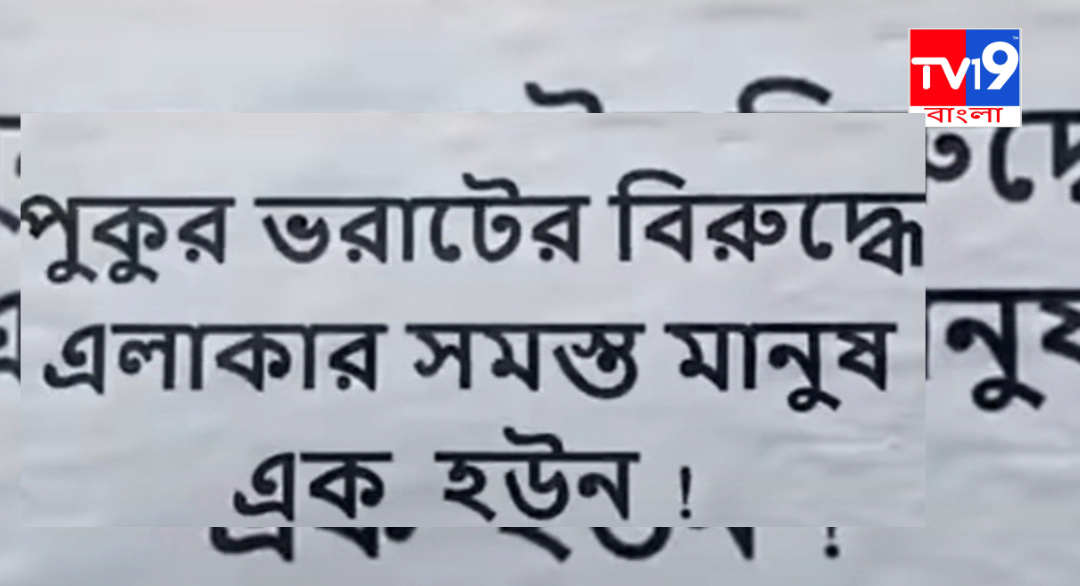 TV19
বাংলা
পুকুর ভরাটের বিরুদ্ধে
এলাকার সমস্ত মানুষ
এক হউন !